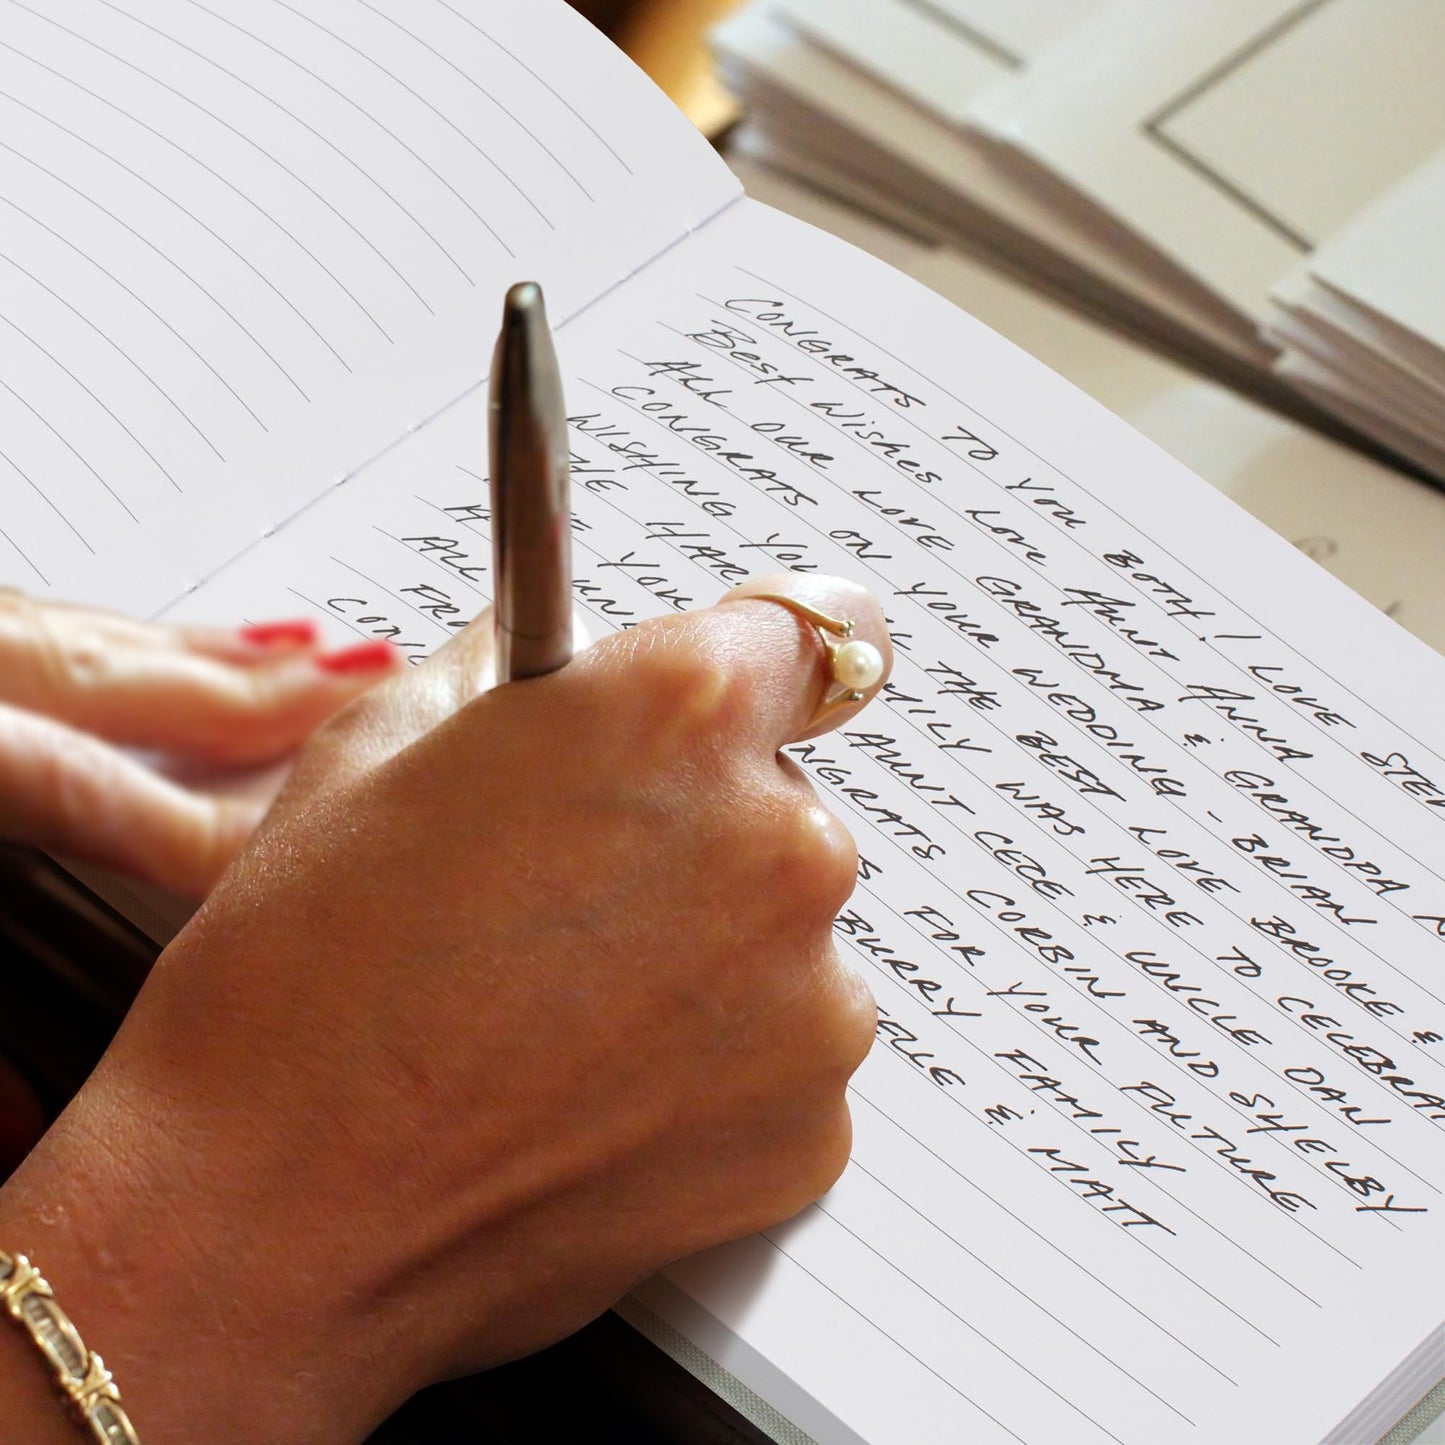 CONGRATS TO YOU BOTH! LOVE
Best Wishes Love Aunt Anna
ALL OUR LOVE GRANDMA & GRANDPA
CONGRATS ON YOUR WEDDING - BRIAN
WISHING YOU THE BEST LOVE BROOKE &
THE WAS HERE TO
YOU AUNT CECE & UNCLE DAN
CORBIN AND SHELBY
ALL FOR YOUR FUTURE
FAMILY
& MATT